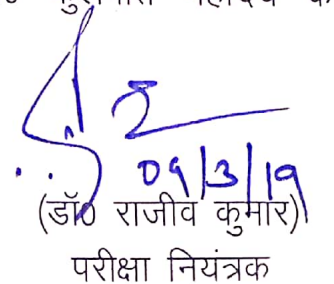 09/3/19
(डॉ० राजीव कुमार)
परीक्षा नियंत्रक